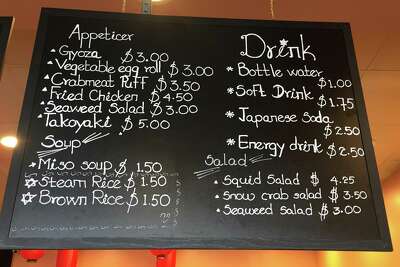 Appeticer
* Gyoza $3.00
* Vegetable egg roll $3.00
* Crabmeat Puff $3.50
* Fried Chicken $4.50
* Seaweed Salad $3.00
* Takoyaki $5.00
Soup
* Miso soup $1.50
* Steam Rice $1.50
* Brown Rice $1.50
Drink
* Bottle water $1.00
* Soft Drink $1.75
* Japanese Soda $2.50
* Energy drink $2.50
Salad
* Squid Salad $4.25
* Snow crab salad $3.50
* Seaweed salad $3.00